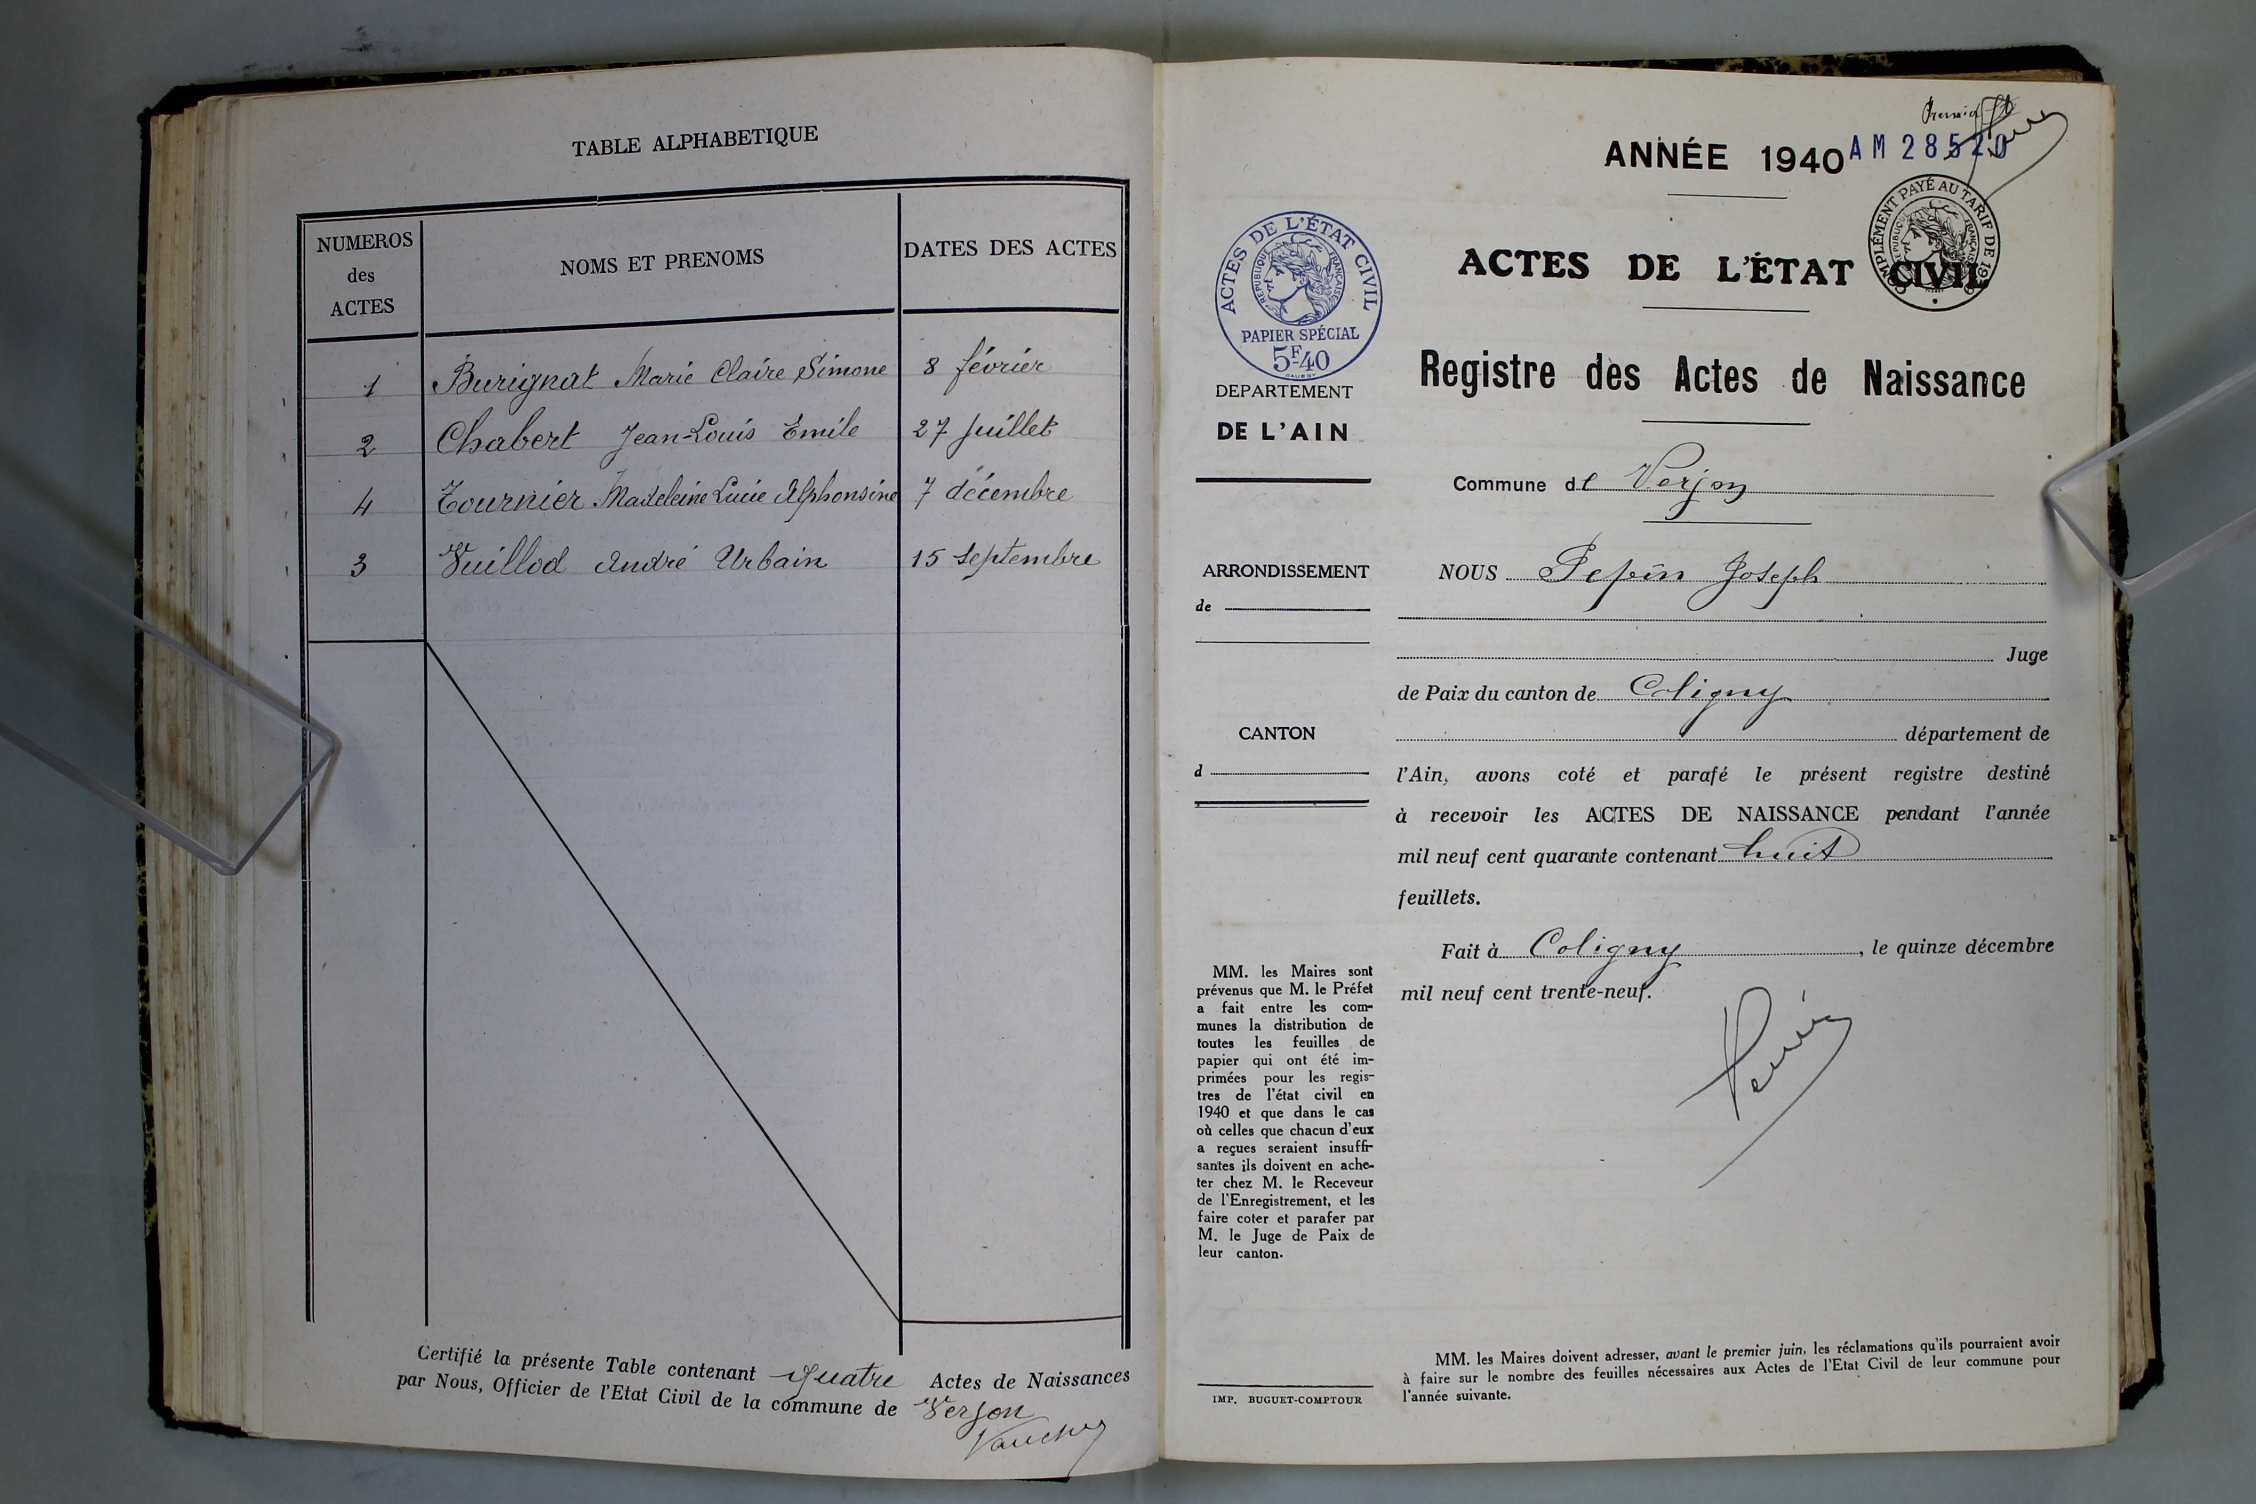 TABLE ALPHABETIQUE
NUMEROS
des
ACTES
NOMS ET PRENOMS
DATES DES ACTES
1 Burignat Marie Claire Simone 8 février
2 Chabert Jean-Louis Emile 27 Juillet
4 Tournier Madeleine Lucie Alphonsine 7 décembre
3 Vuillod André Urbain 15 Septembre
Certifié la présente Table contenant quatre Actes de Naissances
par Nous, Officier de l'Etat Civil de la commune de Verjon
ANNÉE 1940
AM 28520
ACTES DE L'ÉTAT CIVIL
RÉPUBLIQUE FRANÇAISE
PAPIER SPÉCIAL
5F40
COMPLÉMENT PAYÉ AU TARIF DE
RÉPUBLIQUE FRANÇAISE
DEPARTEMENT
DE L'AIN
ARRONDISSEMENT
de
CANTON
d
MM. les Maires sont
prévenus que M. le Préfet
a fait entre les com-
munes la distribution de
toutes les feuilles de
papier qui ont été im-
primées pour les regis-
tres de l'état civil en
1940 et que dans le cas
où celles que chacun d'eux
a reçues seraient insuffi-
santes ils doivent en ache-
ter chez M. le Receveur
de l'Enregistrement, et les
faire coter et parafer par
M. le Juge de Paix de
leur canton.
IMP. BUGUET-COMPTOUR
ACTES DE L'ÉTAT CIVIL
Registre des Actes de Naissance
Commune de Verjon
NOUS Pepin Joseph
Juge
de Paix du canton de Coligny
département de
l'Ain, avons coté et parafé le présent registre destiné
à recevoir les ACTES DE NAISSANCE pendant l'année
mil neuf cent quarante contenant huit
feuillets.
Fait à Coligny, le quinze décembre
mil neuf cent trente-neuf.
MM. les Maires doivent adresser, avant le premier juin, les réclamations qu'ils pourraient avoir
à faire sur le nombre des feuilles nécessaires aux Actes de l'Etat Civil de leur commune pour
l'année suivante.